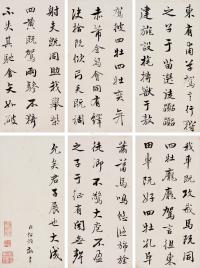 我車既攻我馬既同
四牡龐龐駕言徂東
田車既好四牡孔阜
東有甫草駕言行狩
之子于苗選徒囂囂
建旐設旄搏獸于敖
駕彼四牡四牡奕奕
赤芾金舄會同有繹
決拾既佽弓矢既調
射夫既同助我舉柴
四黃既駕兩驂不猗
不失其馳舍矢如破
蕭蕭馬鳴悠悠旆旌
徒御不驚大庖不盈
之子于征有聞無聲
允矣君子展也大成